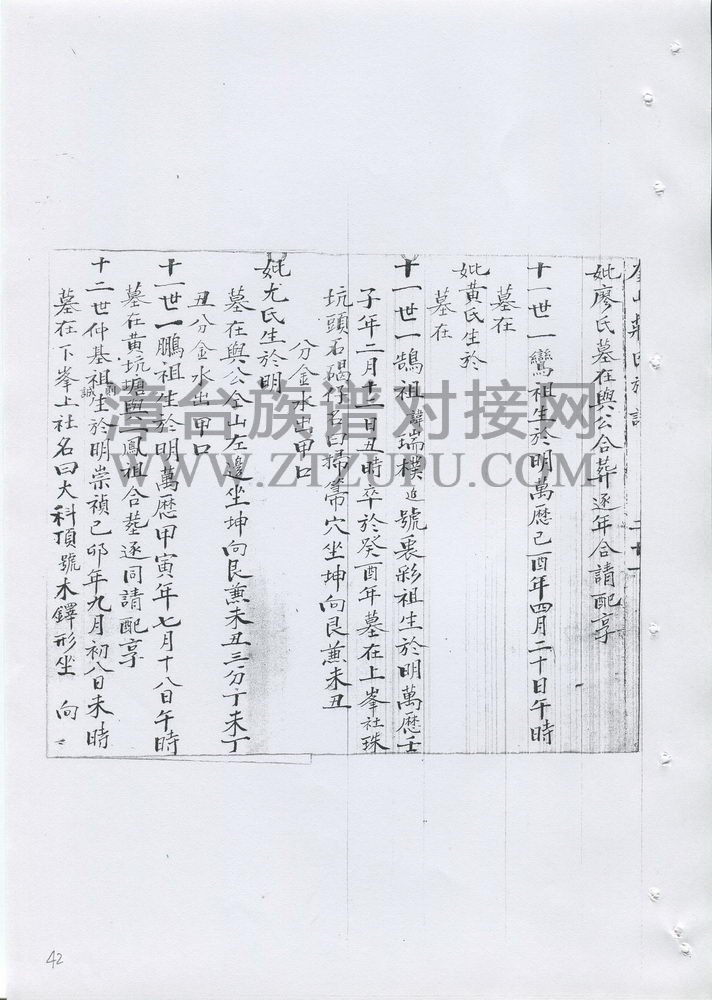 二十一
妣廖氏墓在與公合葬逐年合請配享
十一世一鸞祖生於明萬曆己酉年四月二十日午時
墓在
妣黃氏生於
墓在
十一世一鵠祖諱瑞樸追號裏彩祖生於明萬曆壬
子年二月十二日丑時卒於癸酉年墓在上峯社珠
坑頭石碣仔名曰掃箒穴坐坤向艮兼未丑
分金水出甲口
妣尤氏生於明
墓在與公仝山左邊坐坤向艮兼未丑三分丁未丁
丑分金水出甲口
十一世一鵬祖生於明萬曆甲寅年七月十八日午時
墓在黃坑塘與一鳳祖合葬逐同請配享
十二世仲基祖諱生於明崇禎己卯年九月初八日未時
墓在下峯上社名曰大科頂號木鐸形坐 向
漳台族谱对接网
WWW.ZTZUPU.COM
42